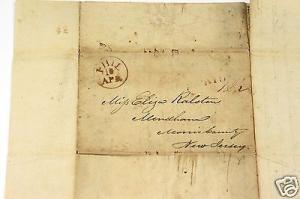 PHIL
10
APR
Miss Eliza Ralston
Mendham
Morris County
New Jersey
ebay